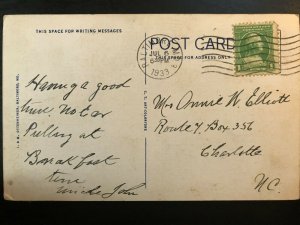 THIS SPACE FOR WRITING MESSAGES
POST CARD
THIS SPACE FOR ADDRESS ONLY
BALTIMORE, MD.
JUL 6
1933
Having a good
time. No Car
Pulling at
Breakfast
time
Uncle John
Mrs Annie W. Elliott
Route 7, Box 356
Charlotte
N.C.